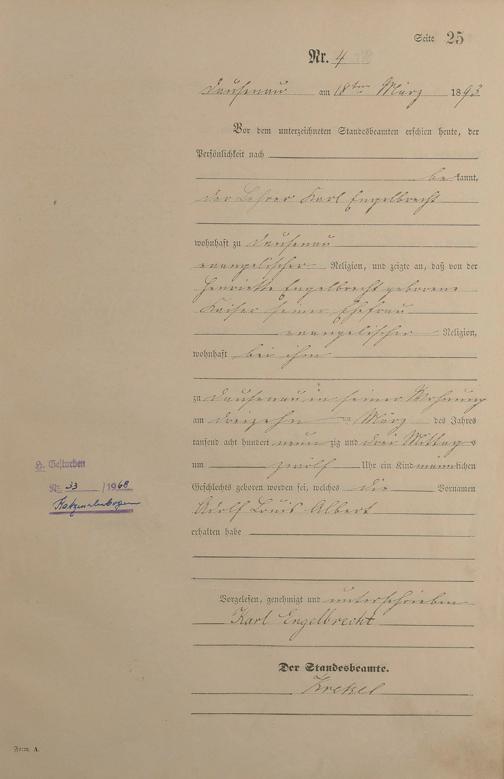 Seite 25
Nr. 4
Dausenau am 18ten März 1893
Vor dem unterzeichneten Standesbeamten erschien heute, der
Persönlichkeit nach
bekannt,
der Lehrer Karl Engelbrecht
wohnhaft zu Dausenau
evangelischer Religion, und zeigte an, daß von der
Henriette Engelbrecht geborene
Kaiser seiner Ehefrau
evangelischer Religion,
wohnhaft bei ihm
zu Dausenau in seiner Wohnung
am dreizehn ten März des Jahres
tausend acht hundert neunzig und drei Mittags
um zwölf Uhr ein Kind männlichen
Geschlechts geboren worden sei, welches die Vornamen
Adolf Louis Albert
erhalten habe
H. Gestorben
Nr. 33 /1968
Katzenelnbogen
Vorgelesen, genehmigt und unterschrieben
Karl Engelbrecht
Der Standesbeamte.
Form. A.